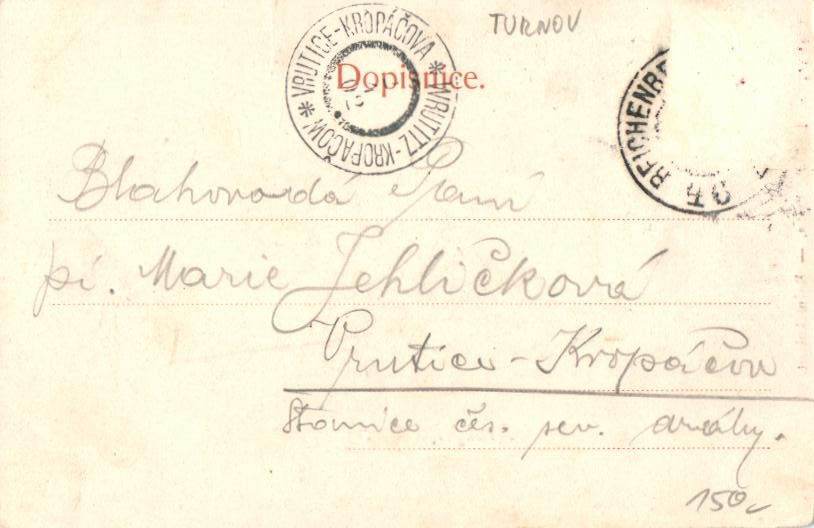 TURNOV
VRUTICE-KROPÁČOVA * WRUTITZ-KROPAČOW *
Dopisnice.
REICHENBE
Blahorodá Paní
pí. Marie Jehličková
Vrutice-Kropáčov
Stanice čes. sev. dráhy.
150,-